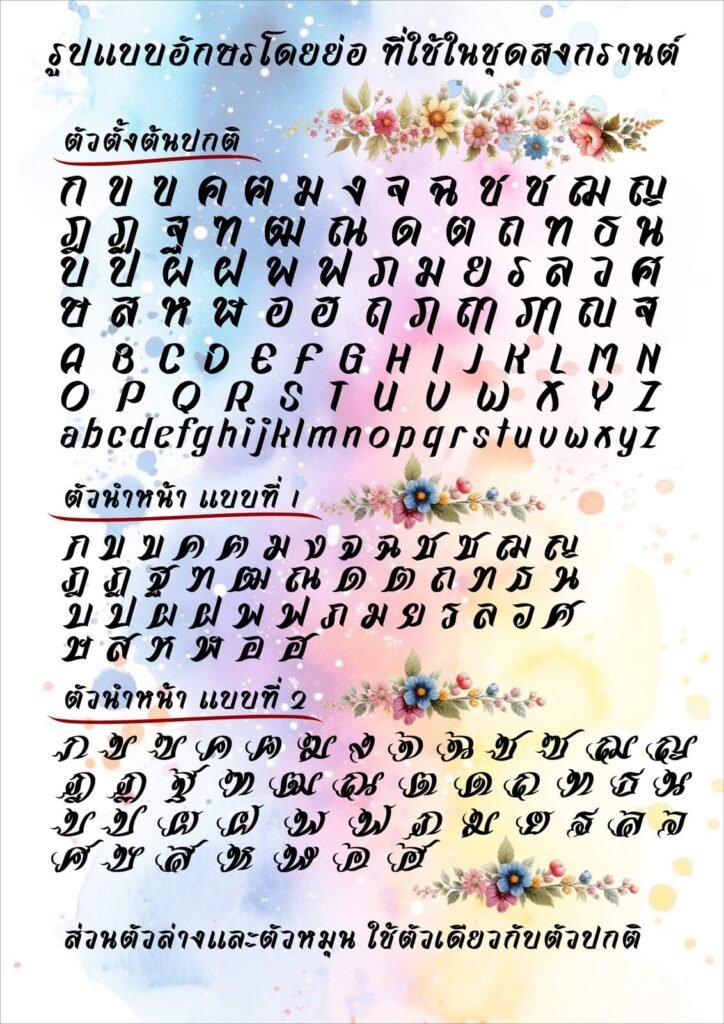 รูปแบบอักษรโดยย่อ ที่ใช้ในชุดสงกรานต์
ตัวตั้งต้นปกติ
ก ข ฃ ค ฅ ฆ ง จ ฉ ช ซ ฌ ญ
ฎ ฏ ฐ ฑ ฒ ณ ด ต ถ ท ธ น
บ ป ผ ฝ พ ฟ ภ ม ย ร ล ว ศ
ษ ส ห ฬ อ ฮ ฤ ฦ
A B C D E F G H I J K L M N
O P Q R S T U V W X Y Z
abcdefghijklmnopqrstuvwxyz
ตัวนำหน้า แบบที่ 1
ก ข ฃ ค ฅ ฆ ง จ ฉ ช ซ ฌ ญ
ฎ ฏ ฐ ฑ ฒ ณ ด ต ถ ท ธ น
บ ป ผ ฝ พ ฟ ภ ม ย ร ล ว ศ
ษ ส ห ฬ อ ฮ
ตัวนำหน้า แบบที่ 2
ก ข ฃ ค ฅ ฆ ง จ ฉ ช ซ ฌ ญ
ฎ ฏ ฐ ฑ ฒ ณ ด ต ถ ท ธ น
บ ป ผ ฝ พ ฟ ภ ม ย ร ล ว
ศ ษ ส ห ฬ อ ฮ
ส่วนตัวล่างและตัวหมุน ใช้ตัวเดียวกับตัวปกติ